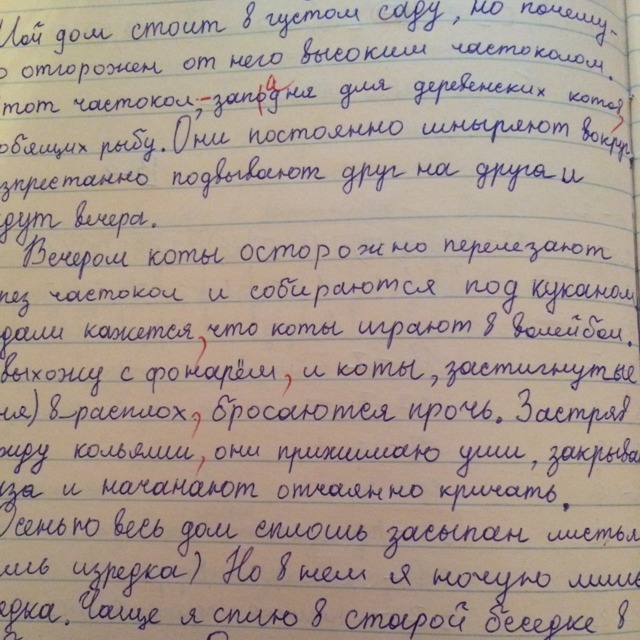 Мой дом стоит в густом саду, но почему-
о отгорожен от него высоким частоколом.
тот частокол, - западня для деревенских котов,
обящих рыбу. Они постоянно шныряют вокруг,
зпрестанно подвывают друг на друга и
дут вечера.
Вечером коты осторожно перелезают
рез частокол и собираются под куканом.
дали кажется, что коты играют в волейбол.
выхожу с фонарём, и коты, застигнутые
ня) в расплох, бросаются прочь. Застряв
жду кольями, они прижимаю уши, закрыва
аза и начанают отчаянно кричать.
Осенью весь дом сплошь засыпан листья
ишь изредка) Но в нем я ночую лишь
едка. Чаще я сплю в старой беседке в